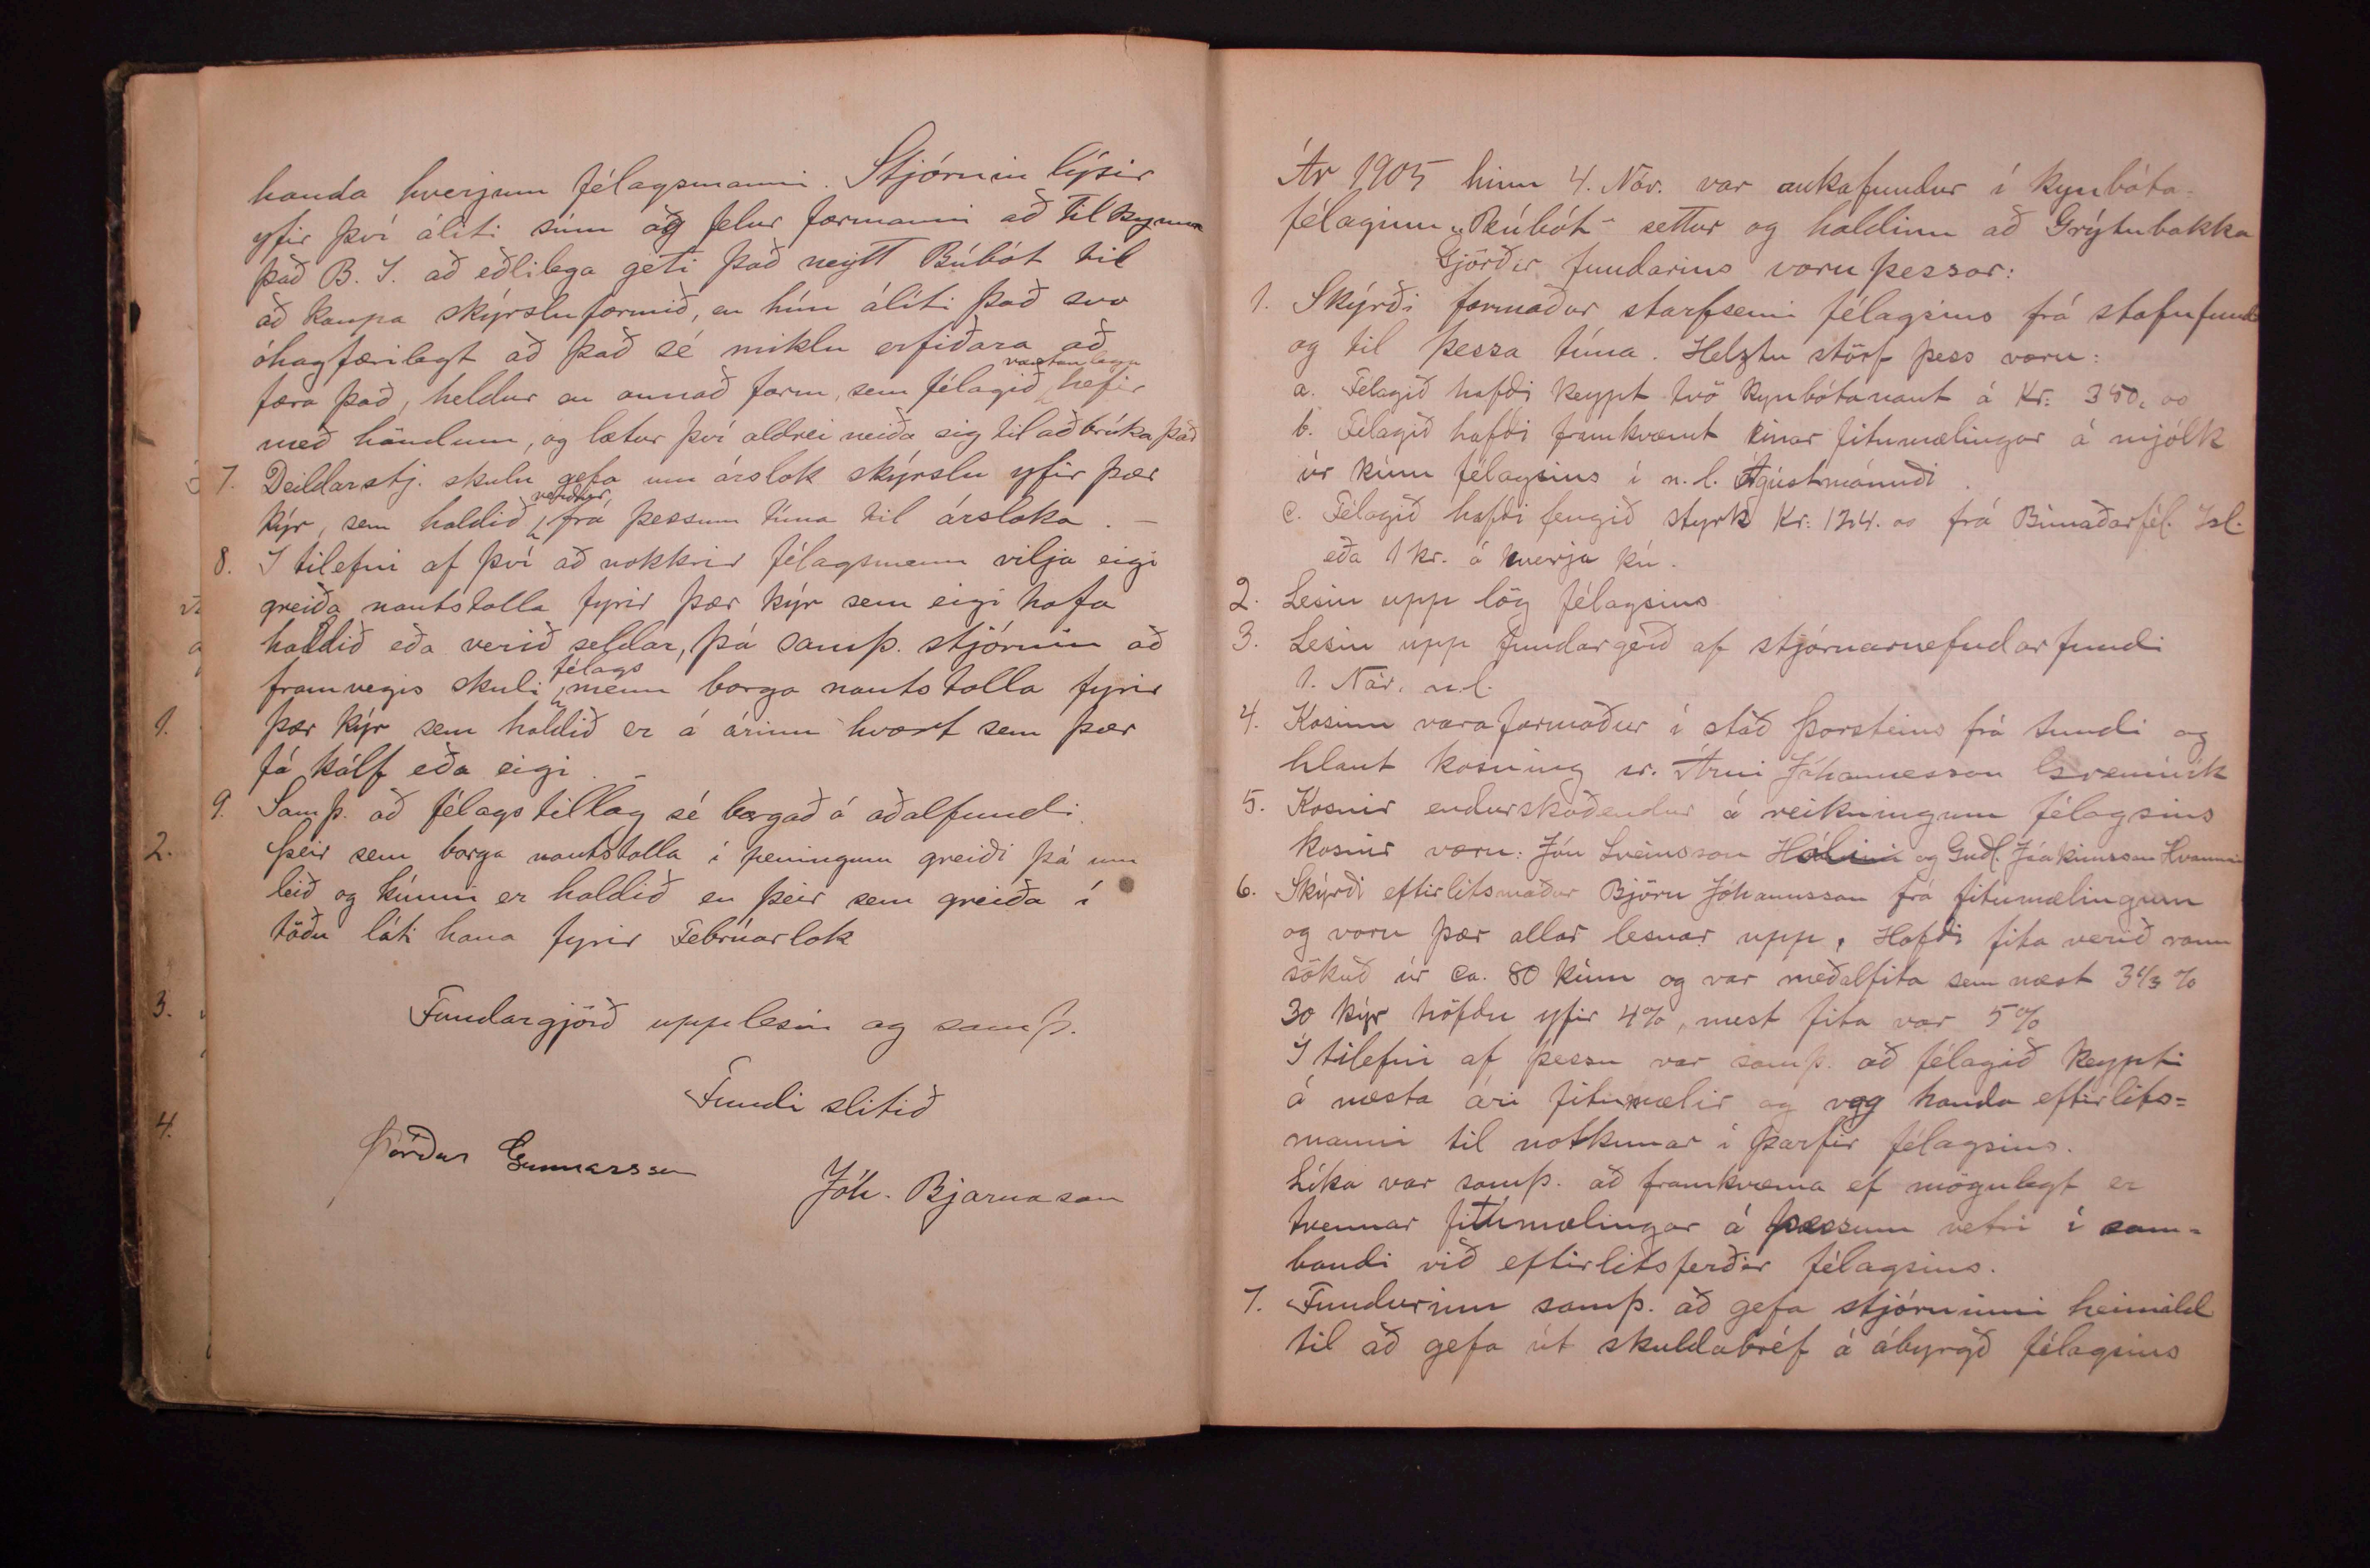 handa hverjum félagsmanni. Stjórnin lýsir
yfir því áliti sínu og felur formanni að tilkynna
það B. Í. að eðlilega geti það neytt Búbót til
að kaupa skýrsluformið, en hún áliti það svo
óhagfærilegt að það sé miklu erfiðara að
færa það, heldur en annað form, sem félagið væntanlega hefir
með höndum, og lætur því aldrei neiða sig til að brúka það
7. Deildarstj. skulu gefa um árslok skýrslu yfir þær
kýr, sem haldið verður, frá þessum tíma til ársloka. –
8. Í tilefni af því að nokkrir félagsmenn vilja eigi
greiða nautstolla fyrir þær kýr sem eigi hafa
haldið eða verið seldar, þá samþ. stjórnin að
framvegis skuli félagsmenn borga nautstolla fyrir
þær kýr sem haldið er á árinu hvort sem þær
fá kálf eða eigi. –
9. Samþ. að félagstillag sé borgað á aðalfundi.
Þeir sem borga nautstolla í peningum greiði þá um
leið og kúnni er haldið en þeir sem greiða í
töðu láti hana fyrir Febrúarlok
Fundargjörð upplesin og samþ.
Fundi slitið
Þórður Gunnarsson
Jóh. Bjarnason
1.
2.
3.
4.
Ár 1905 hinn 4. Nóv. var aukafundur í kynbóta-
félaginu „Búbót" settur og haldinn að Grýtubakka
Gjörðir fundarins voru þessar:
1. Skýrði formaður starfsemi félagsins frá stofnfundi
og til þessa tíma. Helztu störf þess voru:
a. Félagið hafði keypt tvö kynbótanaut á Kr. 350,00
b. Félagið hafði framkvæmt einar fitumælingar á mjólk
úr kúm félagsins í n. l. Ágústmánuði.
c. Félagið hafði fengið styrk Kr: 124.00 frá Búnaðarfél. Ísl.
eða 1 kr. á hverja kú.
2. Lesin upp lög félagsins
3. Lesin upp fundargerð af stjórnarnefndarfundi
1. Nóv. n.l.
4. Kosinn varaformaður í stað Þorsteins frá Lundi og
hlaut kosning sr. Árni Jóhannesson Grenivík
5. Kosnir endurskoðendur á reikningum félagsins
kosnir voru: Jón Sveinsson Hólmi og Guðl. Jóakimsson Hvammi
6. Skýrði eftirlitsmaður Björn Jóhannsson frá fitumælingum
og voru þær allar lesnar upp. Hafði fita verið rann
sökuð úr ca. 80 kúm og var meðalfita sem næst 3 2/3 %
30 kýr höfðu yfir 4%, mest fita var 5%
Í tilefni af þessu var samþ. að félagið keypti
á næsta ári fitumælir og vog handa eftirlits=
manni til notkunar í þarfir félagsins.
Líka var samþ. að framkvæma ef mögulegt er
tvennar fitumælingar á þessum vetri í sam=
bandi við eftirlitsferðir félagsins.
7. Fundurinn samþ. að gefa stjórninni heimild
til að gefa út skuldabréf á ábyrgð félagsins